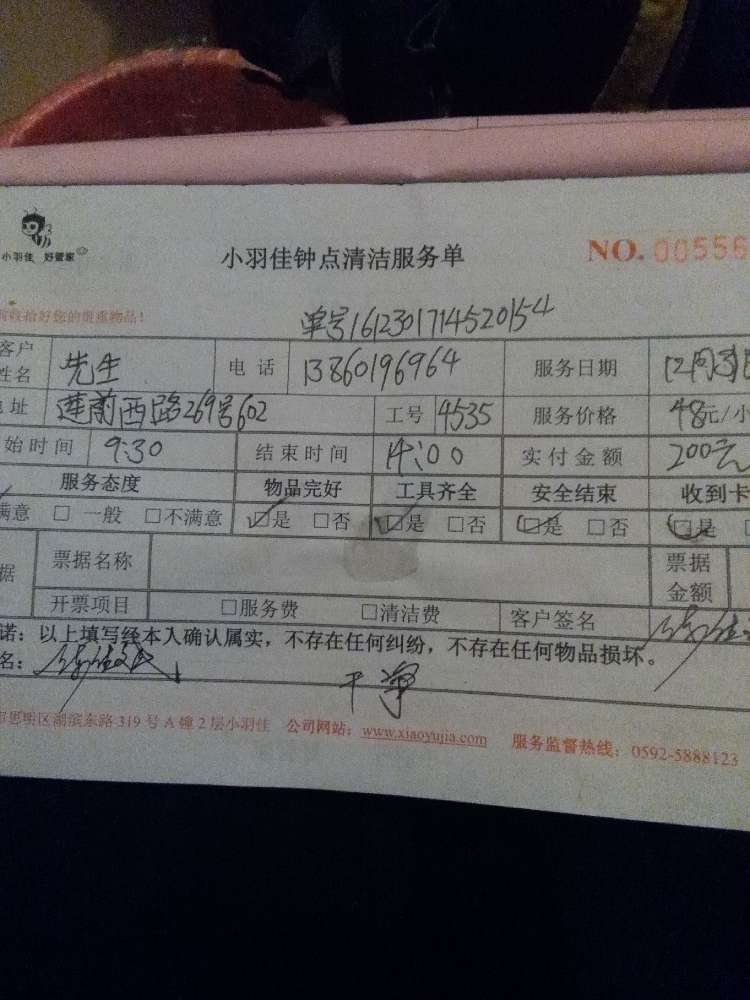 小羽佳 好管家
小羽佳钟点清洁服务单
NO. 00556
前收拾好您的贵重物品!
单号161230171452 0154
客户姓名 先生 电话 13860196964 服务日期 12月31日
地址 莲前西路269号602 工号 4535 服务价格 48元/小
始时间 9:30 结束时间 14:00 实付金额 200元
服务态度 物品完好 工具齐全 安全结束 收到卡
满意 □ 一般 □不满意 ☑是 □否 ☑是 □否 ☑是 □否 ☑是
据 票据名称 票据金额
开票项目 □服务费 □清洁费 客户签名
诺:以上填写经本人确认属实,不存在任何纠纷,不存在任何物品损坏。
名: 干净
市思明区湖滨东路319号A幢2层小羽佳 公司网站:www.xiaoyujia.com 服务监督热线:0592-5888123